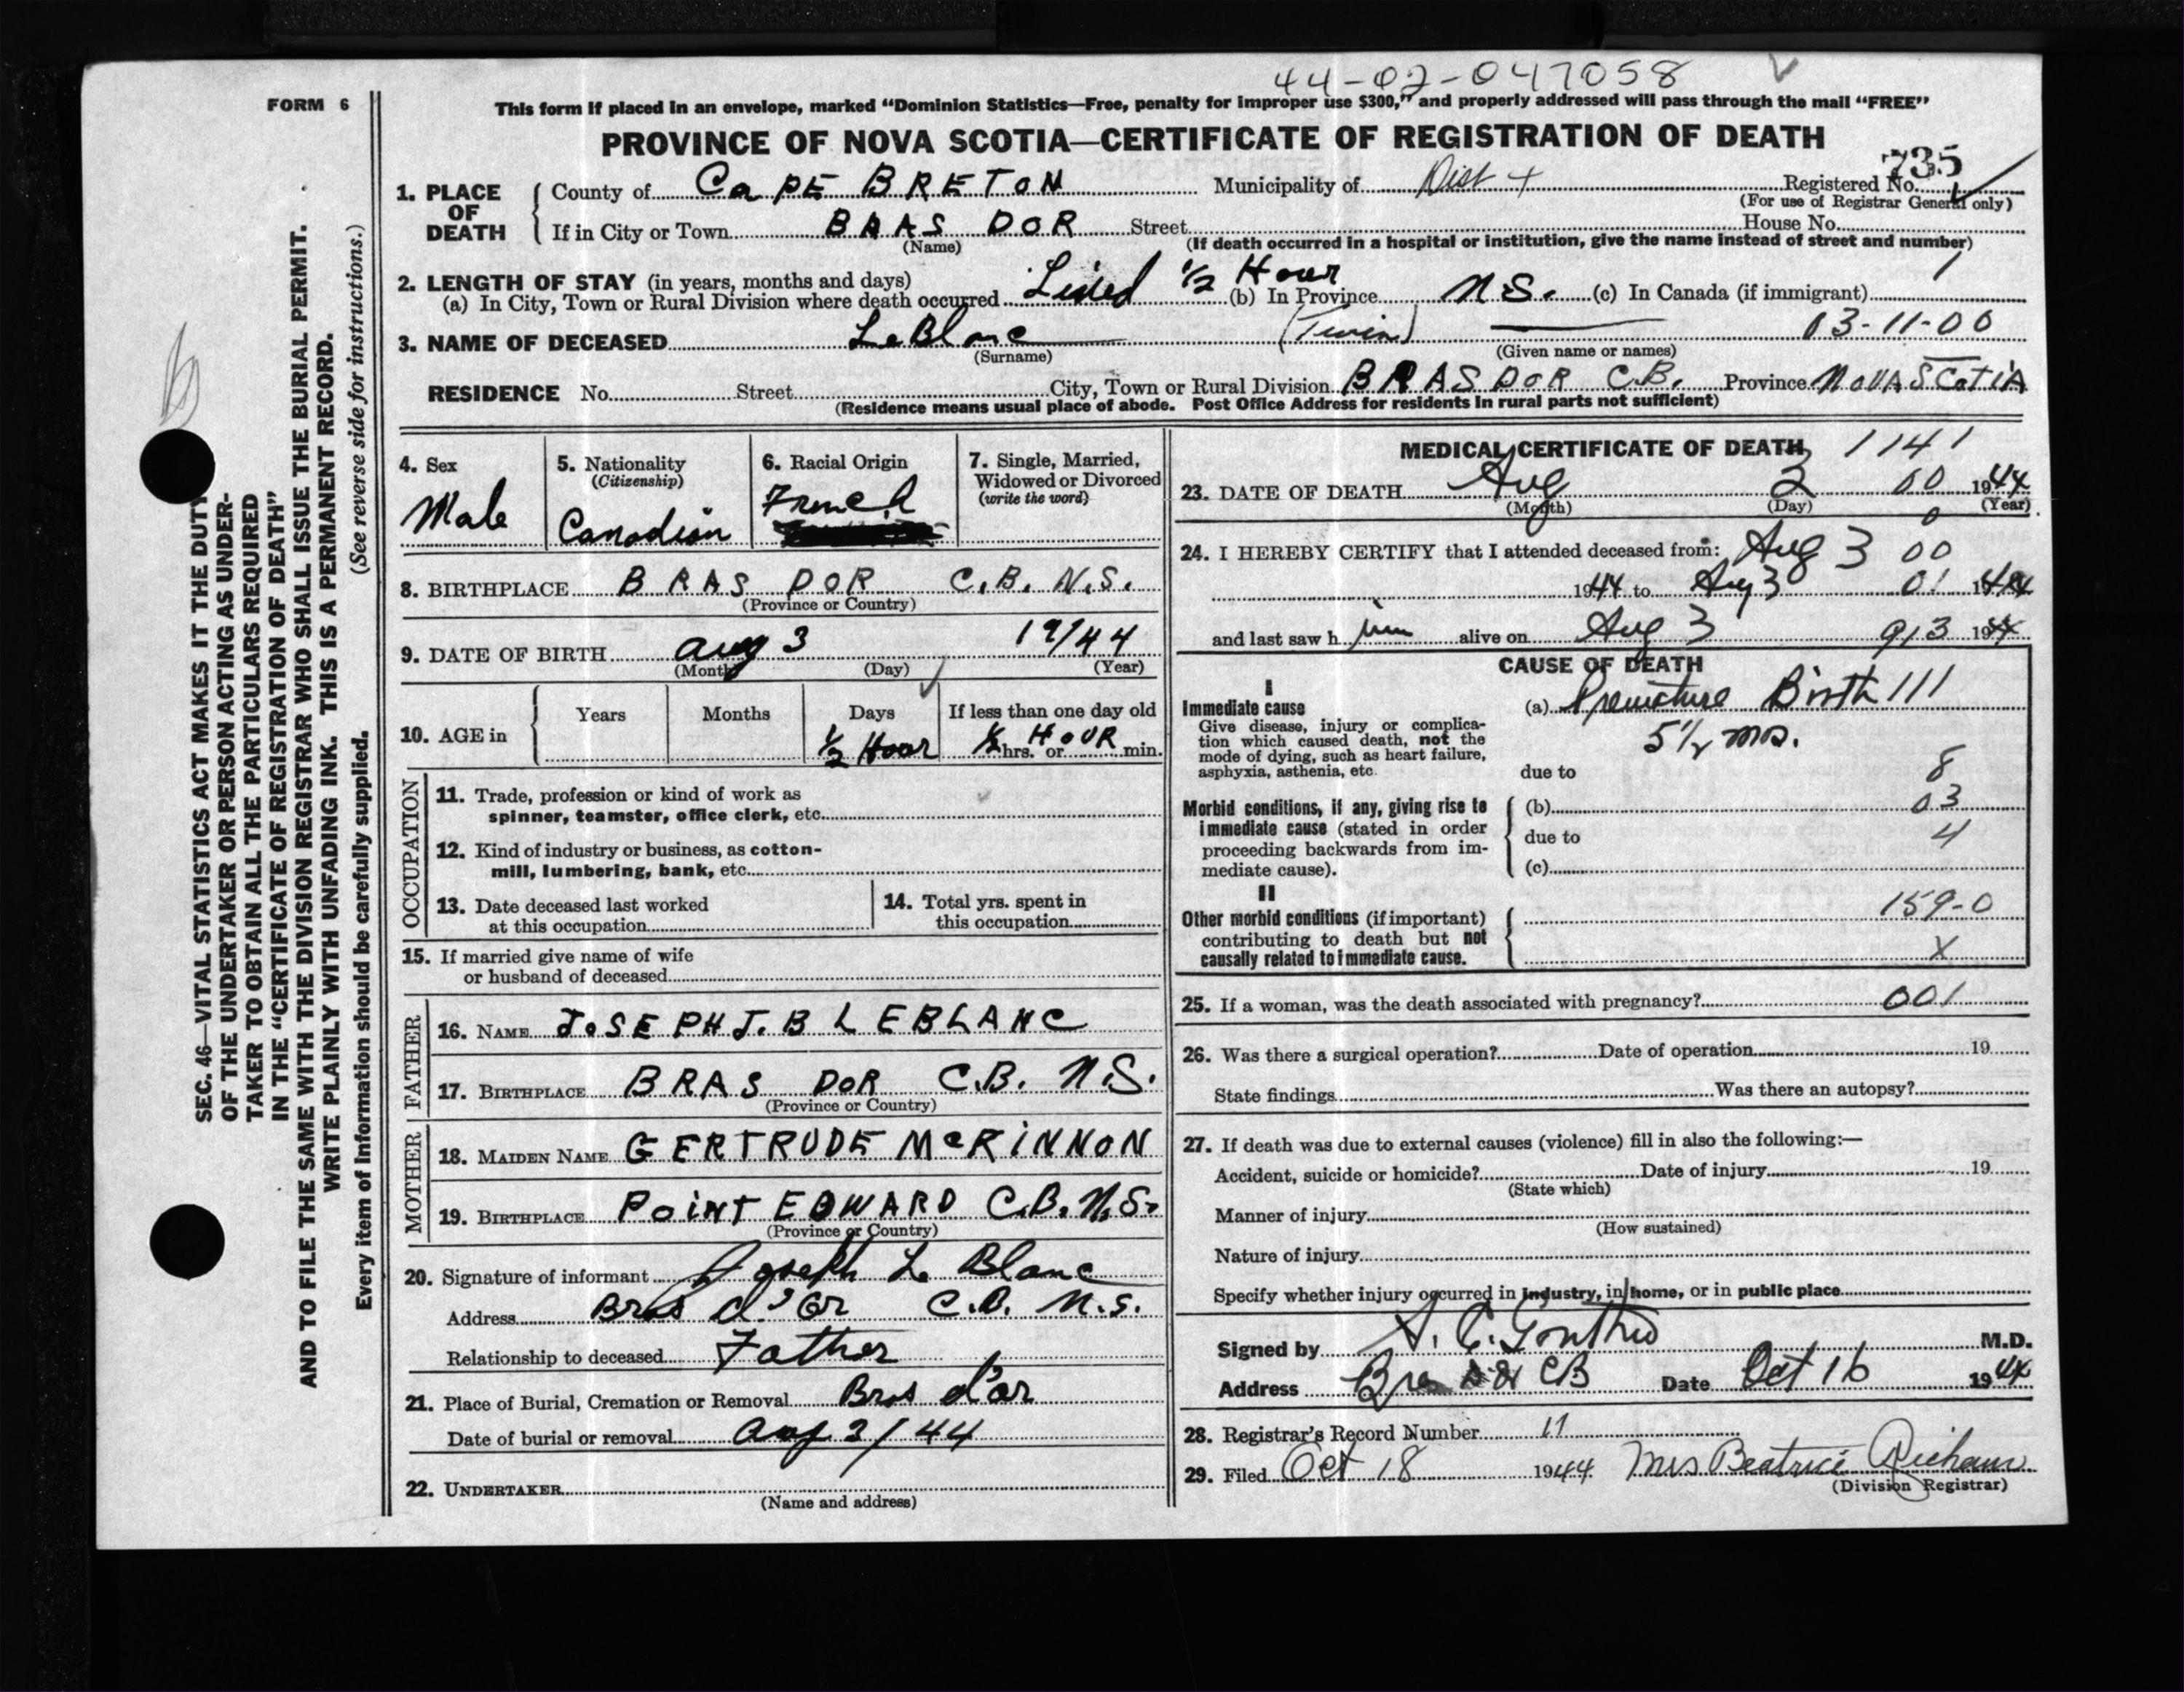 44-02-047058
FORM 6
This form if placed in an envelope, marked “Dominion Statistics—Free, penalty for improper use $300,” and properly addressed will pass through the mail “FREE”
PROVINCE OF NOVA SCOTIA—CERTIFICATE OF REGISTRATION OF DEATH
735
1. PLACE OF DEATH County of CaPE BRETON Municipality of Dist + Registered No.
(For use of Registrar General only)
If in City or Town BRAS DOR Street House No.
(Name) (If death occurred in a hospital or institution, give the name instead of street and number)
2. LENGTH OF STAY (in years, months and days)
(a) In City, Town or Rural Division where death occurred Lived 1/2 Hour (b) In Province N.S. (c) In Canada (if immigrant) 1
3. NAME OF DECEASED LeBlanc (Twin) 03-11-00
(Surname) (Given name or names)
RESIDENCE No. Street City, Town or Rural Division BRAS DOR C.B. Province NOVA SCOTIA
(Residence means usual place of abode. Post Office Address for residents in rural parts not sufficient)
4. Sex
Male
5. Nationality
(Citizenship)
Canadian
6. Racial Origin
French
7. Single, Married,
Widowed or Divorced
(write the word)
8. BIRTHPLACE BRAS DOR C.B. N.S.
(Province or Country)
9. DATE OF BIRTH Aug 3 19/44
(Month) (Day) (Year)
10. AGE in Years Months Days If less than one day old
1/2 Hour 1/2 hrs. or HOUR min.
OCCUPATION
11. Trade, profession or kind of work as
spinner, teamster, office clerk, etc.
12. Kind of industry or business, as cotton-
mill, lumbering, bank, etc.
13. Date deceased last worked
at this occupation
14. Total yrs. spent in
this occupation
15. If married give name of wife
or husband of deceased
FATHER
16. NAME JOSEPH J.B LEBLANC
17. BIRTHPLACE BRAS DOR C.B. N.S.
(Province or Country)
MOTHER
18. MAIDEN NAME GERTRUDE McKINNON
19. BIRTHPLACE POINT EDWARD C.B. N.S.
(Province or Country)
20. Signature of informant Joseph Le Blanc
Address Bras d'Or C.B. N.S.
Relationship to deceased Father
21. Place of Burial, Cremation or Removal Bras d'or
Date of burial or removal Aug 3/44
22. UNDERTAKER
(Name and address)
MEDICAL CERTIFICATE OF DEATH 1141
23. DATE OF DEATH Aug 3 00 1944
(Month) (Day) (Year)
0
24. I HEREBY CERTIFY that I attended deceased from: Aug 3 00
1944 to Aug 3 01 1944
and last saw him alive on Aug 3 913 1944
CAUSE OF DEATH
I
Immediate cause
Give disease, injury or complica-
tion which caused death, not the
mode of dying, such as heart failure,
asphyxia, asthenia, etc.
(a) Premature Birth 111
5 1/2 mos.
due to 8
Morbid conditions, if any, giving rise to
immediate cause (stated in order
proceeding backwards from im-
mediate cause).
(b) 03
due to 4
(c)
II
Other morbid conditions (if important)
contributing to death but not
causally related to immediate cause.
159-0
X
25. If a woman, was the death associated with pregnancy? 001
26. Was there a surgical operation? Date of operation 19
State findings Was there an autopsy?
27. If death was due to external causes (violence) fill in also the following:—
Accident, suicide or homicide? Date of injury 19
(State which)
Manner of injury
(How sustained)
Nature of injury
Specify whether injury occurred in industry, in home, or in public place
Signed by M.D.
Address CB Date Oct 16 1944
28. Registrar's Record Number 11
29. Filed Oct 18 1944 Mrs Beatrice
(Division Registrar)
SEC. 46—VITAL STATISTICS ACT MAKES IT THE DUTY
OF THE UNDERTAKER OR PERSON ACTING AS UNDER-
TAKER TO OBTAIN ALL THE PARTICULARS REQUIRED
IN THE “CERTIFICATE OF REGISTRATION OF DEATH”
AND TO FILE THE SAME WITH THE DIVISION REGISTRAR WHO SHALL ISSUE THE BURIAL PERMIT.
WRITE PLAINLY WITH UNFADING INK. THIS IS A PERMANENT RECORD.
Every item of Information should be carefully supplied. (See reverse side for instructions.)